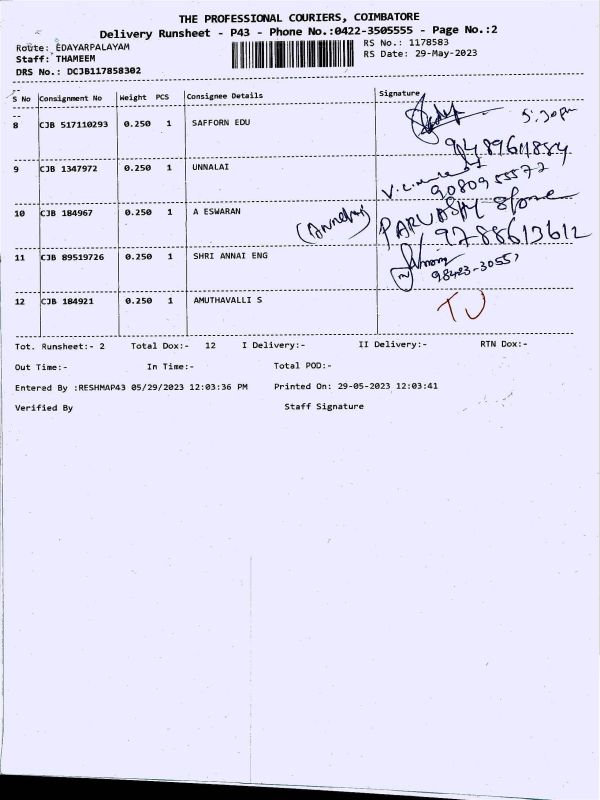 THE PROFESSIONAL COURIERS, COIMBATORE
Delivery Runsheet - P43 - Phone No.:0422-3505555 - Page No.:2
Route: EDAYARPALAYAM
RS No.: 1178583
Staff: THAMEEM
RS Date: 29-May-2023
DRS No.: DCJB117858302
S No Consignment No Weight PCS Consignee Details Signature
8 CJB 517110293 0.250 1 SAFFORN EDU 5:30pm
9 CJB 1347972 0.250 1 UNNALAI
9080955572
10 CJB 184967 0.250 1 A ESWARAN
9788613612
11 CJB 89519726 0.250 1 SHRI ANNAI ENG
12 CJB 184921 0.250 1 AMUTHAVALLI S
Tot. Runsheet:- 2 Total Dox:- 12 I Delivery:- II Delivery:- RTN Dox:-
Out Time:- In Time:- Total POD:-
Entered By :RESHMAP43 05/29/2023 12:03:36 PM Printed On: 29-05-2023 12:03:41
Verified By Staff Signature